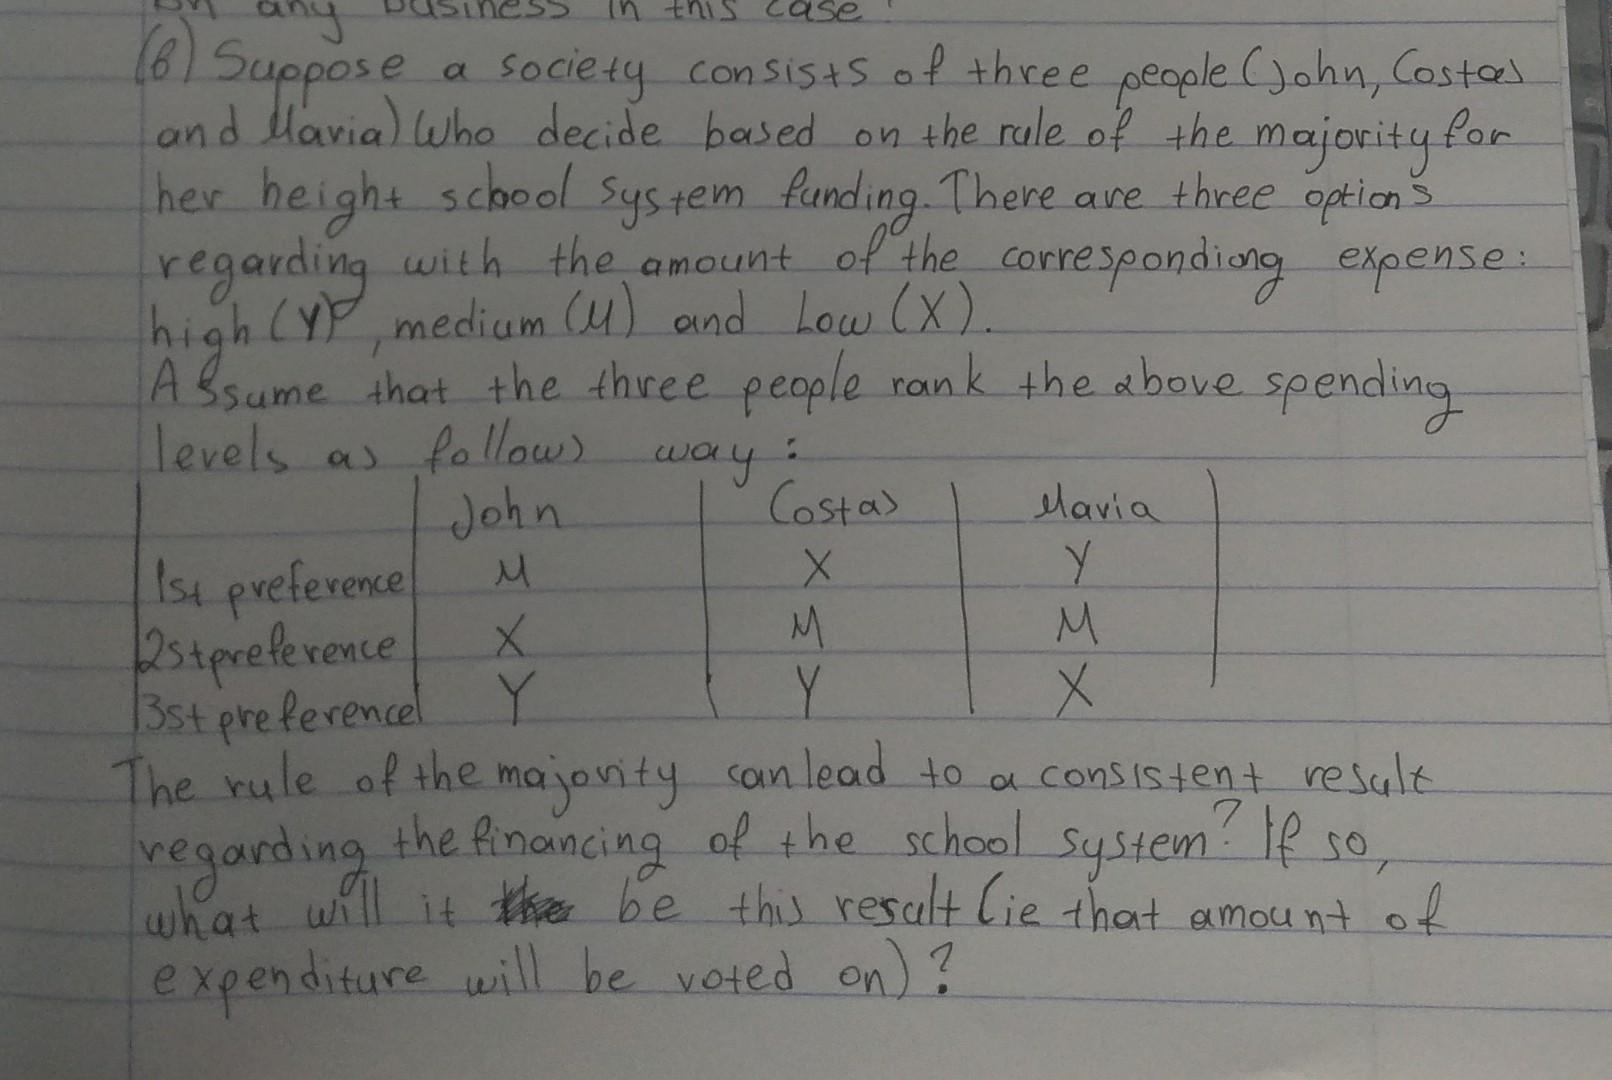 on any business in this case!
(6) Suppose a society consists of three people (John, Costas
and Maria) Who decide based on the rule of the majority for
her height school system funding. There are three options
regarding with the amount of the correspondiong expense:
high (Y), medium (M) and Low (X).
Assume that the three people rank the above spending
levels as follows way:
John Costas Maria
1st preference M X Y
2st preference X M M
3st preference Y Y X
The rule of the majority can lead to a consistent result
regarding the financing of the school system? If so,
what will it be this result (ie that amount of
expenditure will be voted on)?